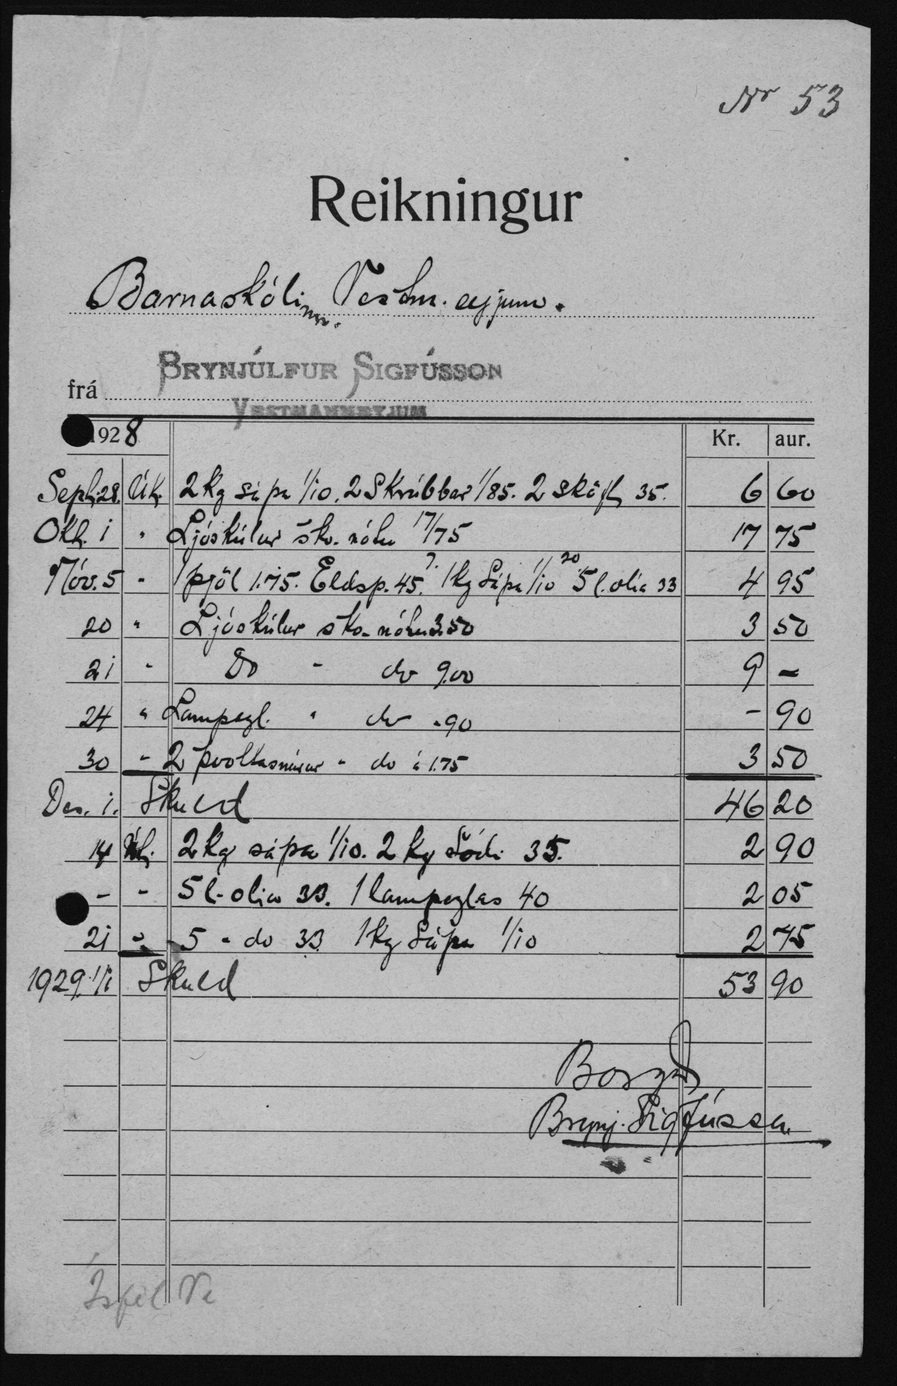 Nr 53
Reikningur
Barnaskólinn. Vestm.eyjum.
frá BRYNJÚLFUR SIGFÚSSON
VESTMANNEYJUM
1928 Kr. aur.
Sept. 28. Út. 2 kg sápa 1/10. 2 Skrúbber 1/85. 2 35. 6 60
Okt. 1 " Ljóskúlur sk. nótu 17/75 17 75
Nóv. 5 - 1 þjöl 1.75. Eldsp. 45. 1 kg Sápa 1/10 5 l. olía 33 4 95
20 " Ljóskúlur sk. nótu 3.50 3 50
21 - Do - do 9.00 9 -
24 " Lampagl. " do -.90 - 90
30 - 2 - do á 1.75 3 50
Des. 1. Skuld 46 20
14 Út. 2 kg sápa 1/10. 2 kg Sódi 35. 2 90
- - 5 l - olía 33. 1 lampaglas 40 2 05
21 - 5 - do 33 1 kg Sápa 1/10 2 75
1929 1/1 Skuld 53 90
Borgað
Brynj. Sigfússon
Ísfél Ve